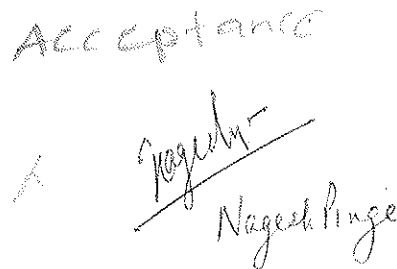 Acceptance
Nagesh
Nagesh Pinge